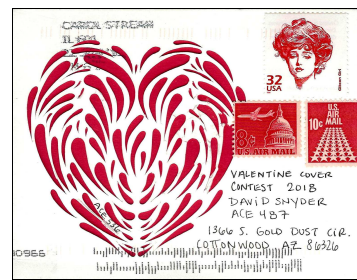 CAROL STREAM
IL 601
32
USA
8¢
U.S. AIR MAIL
U.S.
AIR
MAIL
10¢
VALENTINE COVER
CONTEST 2018
DAVID SNYDER
ACE 487
1366 S. GOLD DUST CIR.
COTTONWOOD AZ 86326